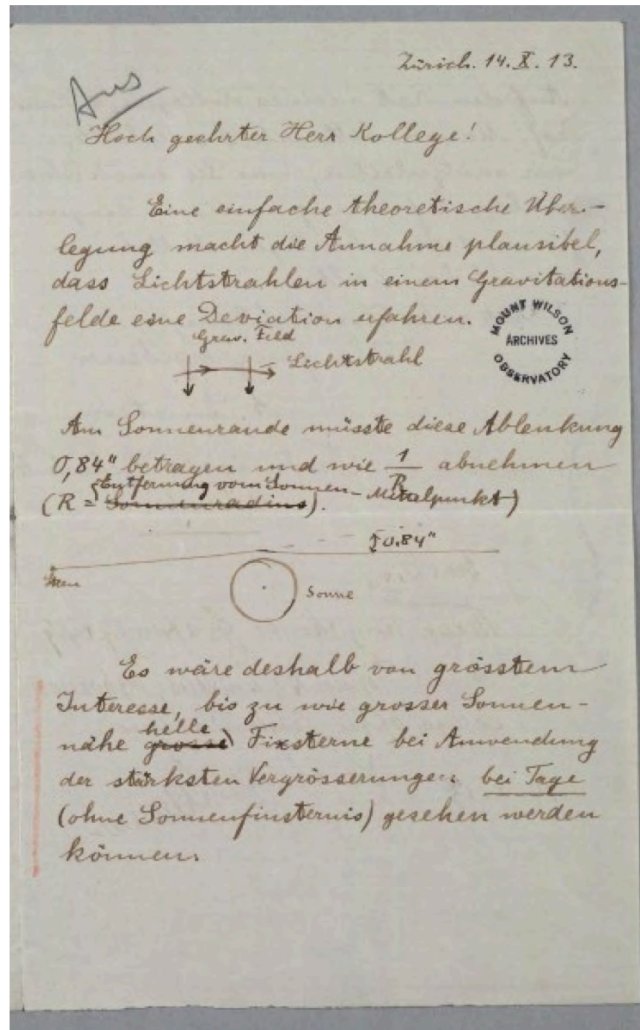 Zürich. 14. X. 13.
Aus
Hoch geehrter Herr Kollege!
Eine einfache theoretische Über-
legung macht die Annahme plausibel,
dass Lichtstrahlen in einem Gravitations-
felde eine Deviation erfahren.
MOUNT WILSON
ARCHIVES
OBSERVATORY
Grav. Feld
Lichtstrahl
Am Sonnenrande müsste diese Ablenkung
0,84" betragen und wie 1/R abnehmen
Entfernung vom Sonnen-Mittelpunkt
(R = Sonnenradius).
0.84"
Sonne
Es wäre deshalb von grösstem
Interesse, bis zu wie grosser Sonnen-
helle
nähe grosse Fixsterne bei Anwendung
der stärksten Vergrösserungen bei Tage
(ohne Sonnenfinsternis) gesehen werden
können.